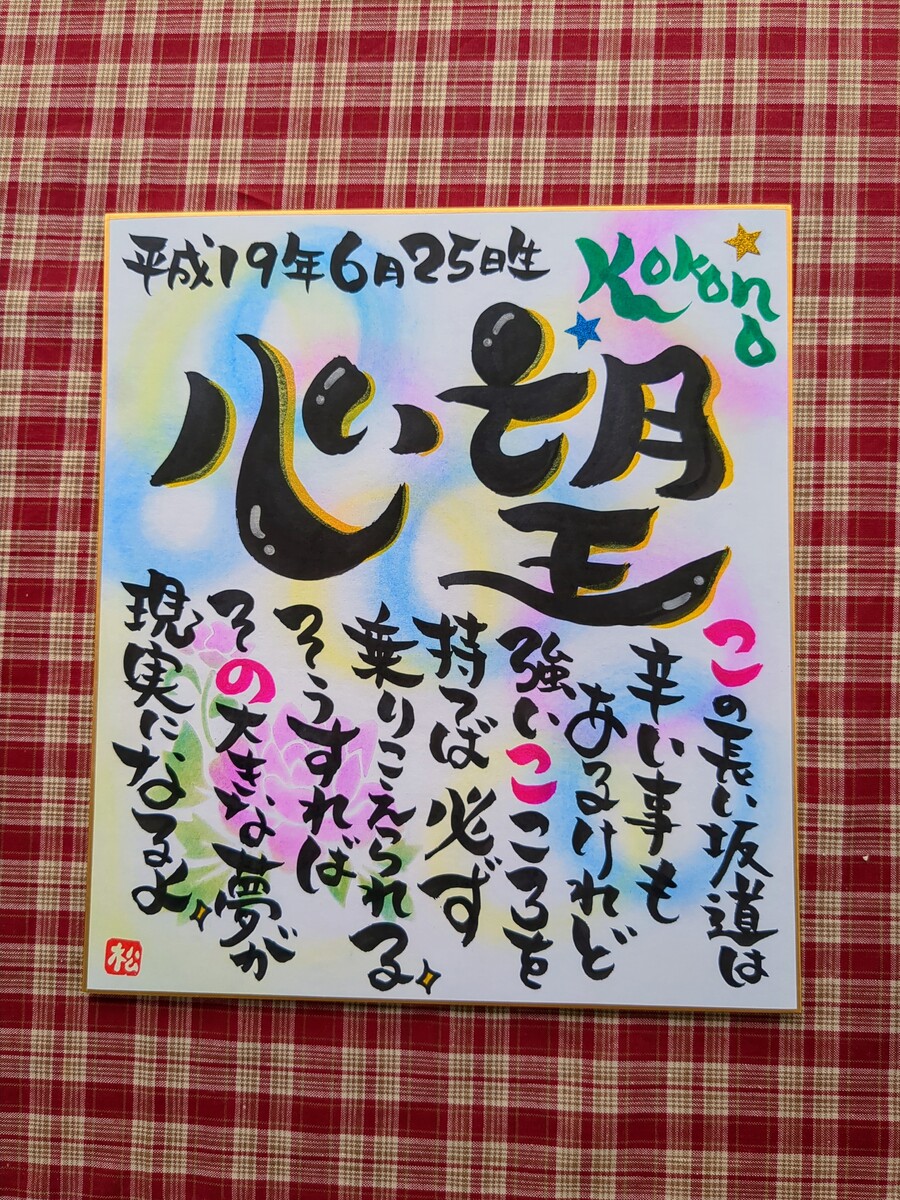 平成19年6月25日生
Kokono
心望
この長い坂道は
辛い事も
あるけれど
強いこころを
持てば必ず
乗りこえられる
そうすれば
その大きな夢が
現実になるよ
松